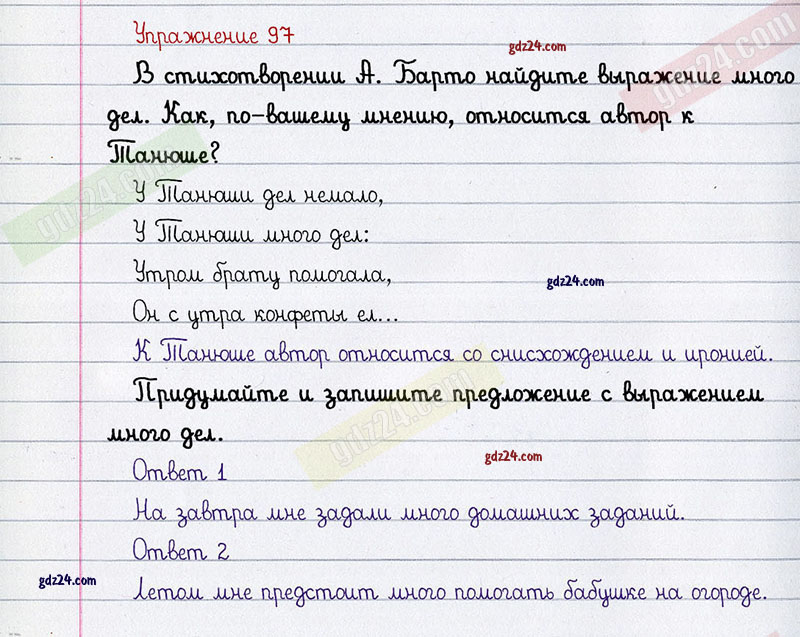 gdz24.com
Упражнение 97
gdz24.com
В стихотворении А. Барто найдите выражение много
дел. Как, по-вашему мнению, относится автор к
Танюше?
gdz24.com
У Танюши дел немало,
У Танюши много дел:
Утром брату помогала,
gdz24.com
Он с утра конфеты ел...
К Танюше автор относится со снисхождением и иронией.
Придумайте и запишите предложение с выражением
много дел.
gdz24.com
gdz24.com
Ответ 1
На завтра мне задали много домашних заданий.
Ответ 2
gdz24.com
Летом мне предстоит много помогать бабушке на огороде.